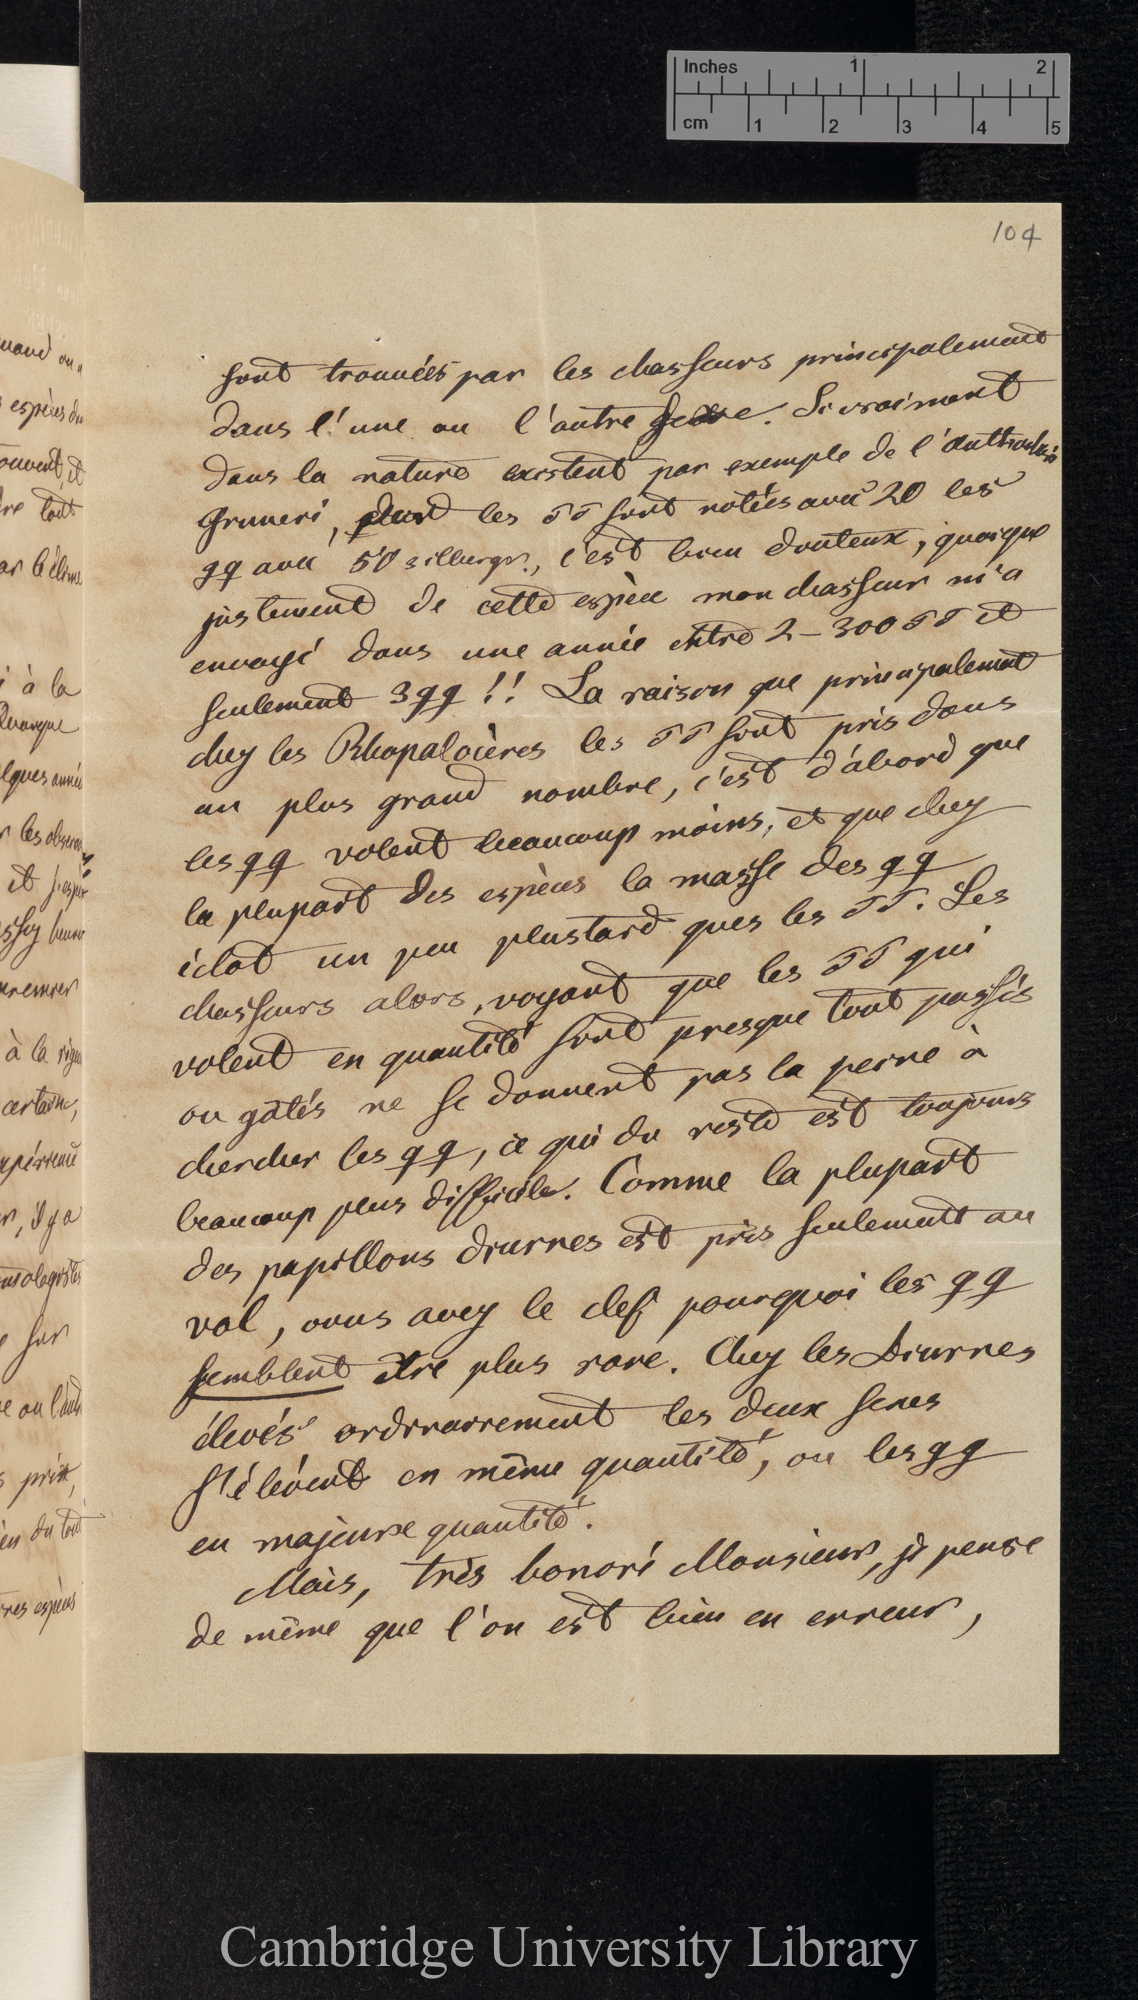 Inches 1 2
cm 1 2 3 4 5
104
sont trouvées par les chasseurs principalement
dans l'une ou l'autre sexe. Si vraiment
dans la nature existent par exemple de l'Anthocharis
Gruneri, dont les ♂♂ sont notées avec 20 les
♀♀ avec 50 silbergr., c'est bien douteux, quoique
justement de cette espèce mon chasseur m'a
envoyé dans une année entre 2–300 ♂♂ et
seulement 3 ♀♀!! La raison que principalement
chez les Rhopalocères les ♂♂ sont pris dans
un plus grand nombre, c'est d'abord que
les ♀♀ volent beaucoup moins, et que chez
la plupart des espèces la masse des ♀♀
éclot un peu plustard ques les ♂♂. Les
chasseurs alors, voyant que les ♂♂ qui
volent en quantité sont presque tout passés
ou gâtés ne se donnent pas la peine à
chercher les ♀♀, ce qui du reste est toujours
beaucoup plus difficile. Comme la plupart
des papillons diurnes est pris seulement au
vol, vous avez le clef pourquoi les ♀♀
semblent être plus rare. Chez les Diurnes
élevés ordinairement les deux sexes
s'élèvent en même quantité, ou les ♀♀
en majeure quantité.
Mais, très honoré Monsieur, je pense
de même que l'on est bien en erreur,
Cambridge University Library